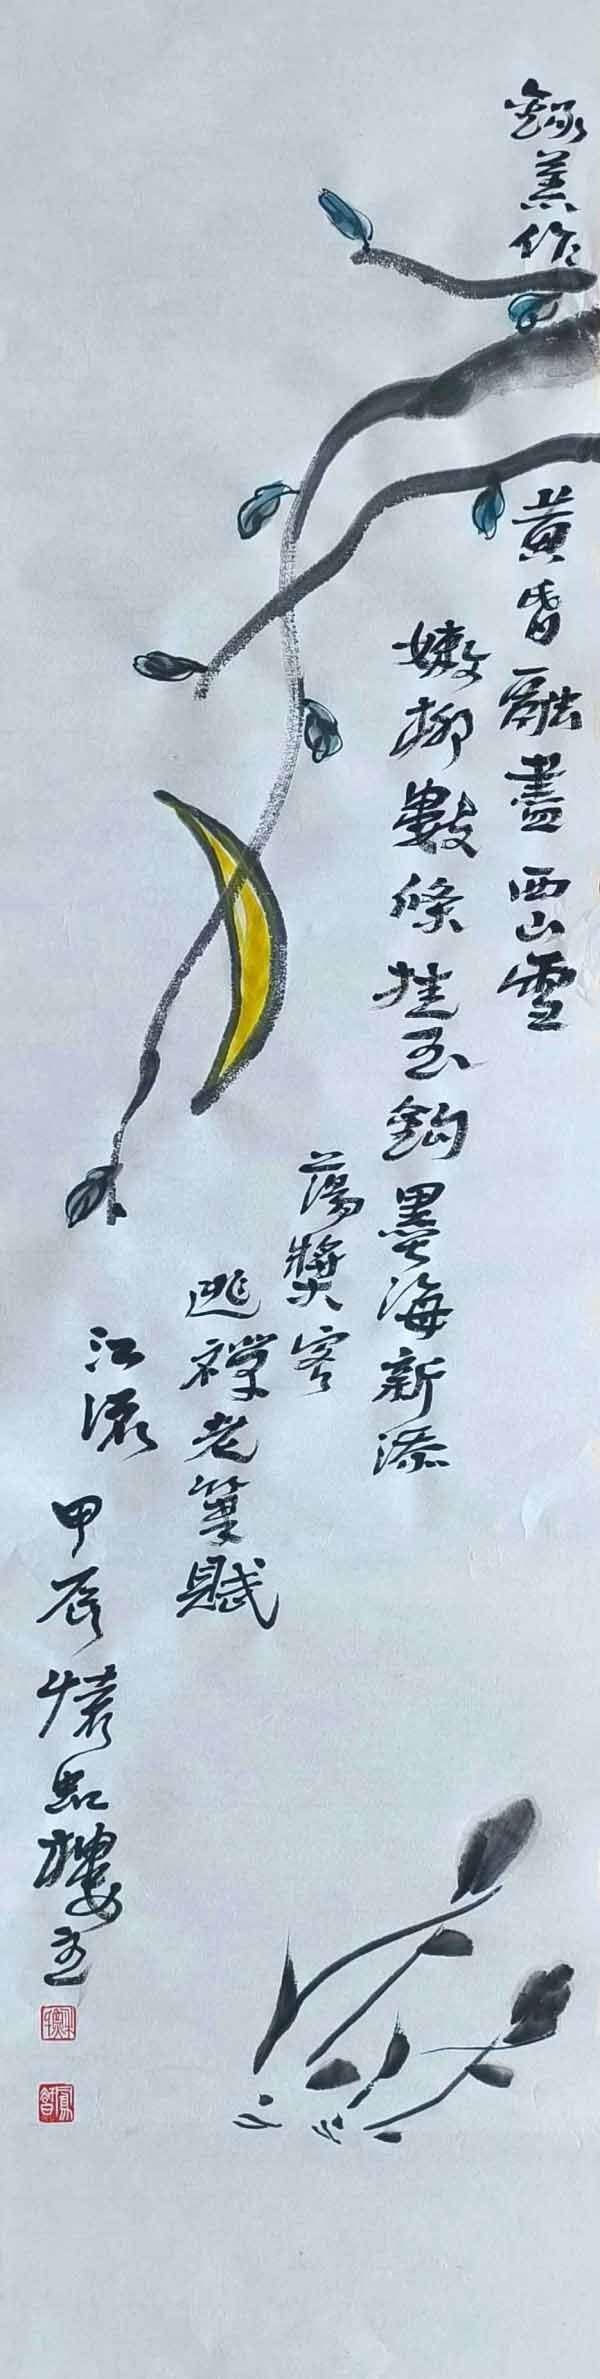 作
黃昏融盡西山雪
嫩柳數條挂玉鉤墨海新添
蕩槳客
逃禪老筆賦
江流
甲辰虹樓主